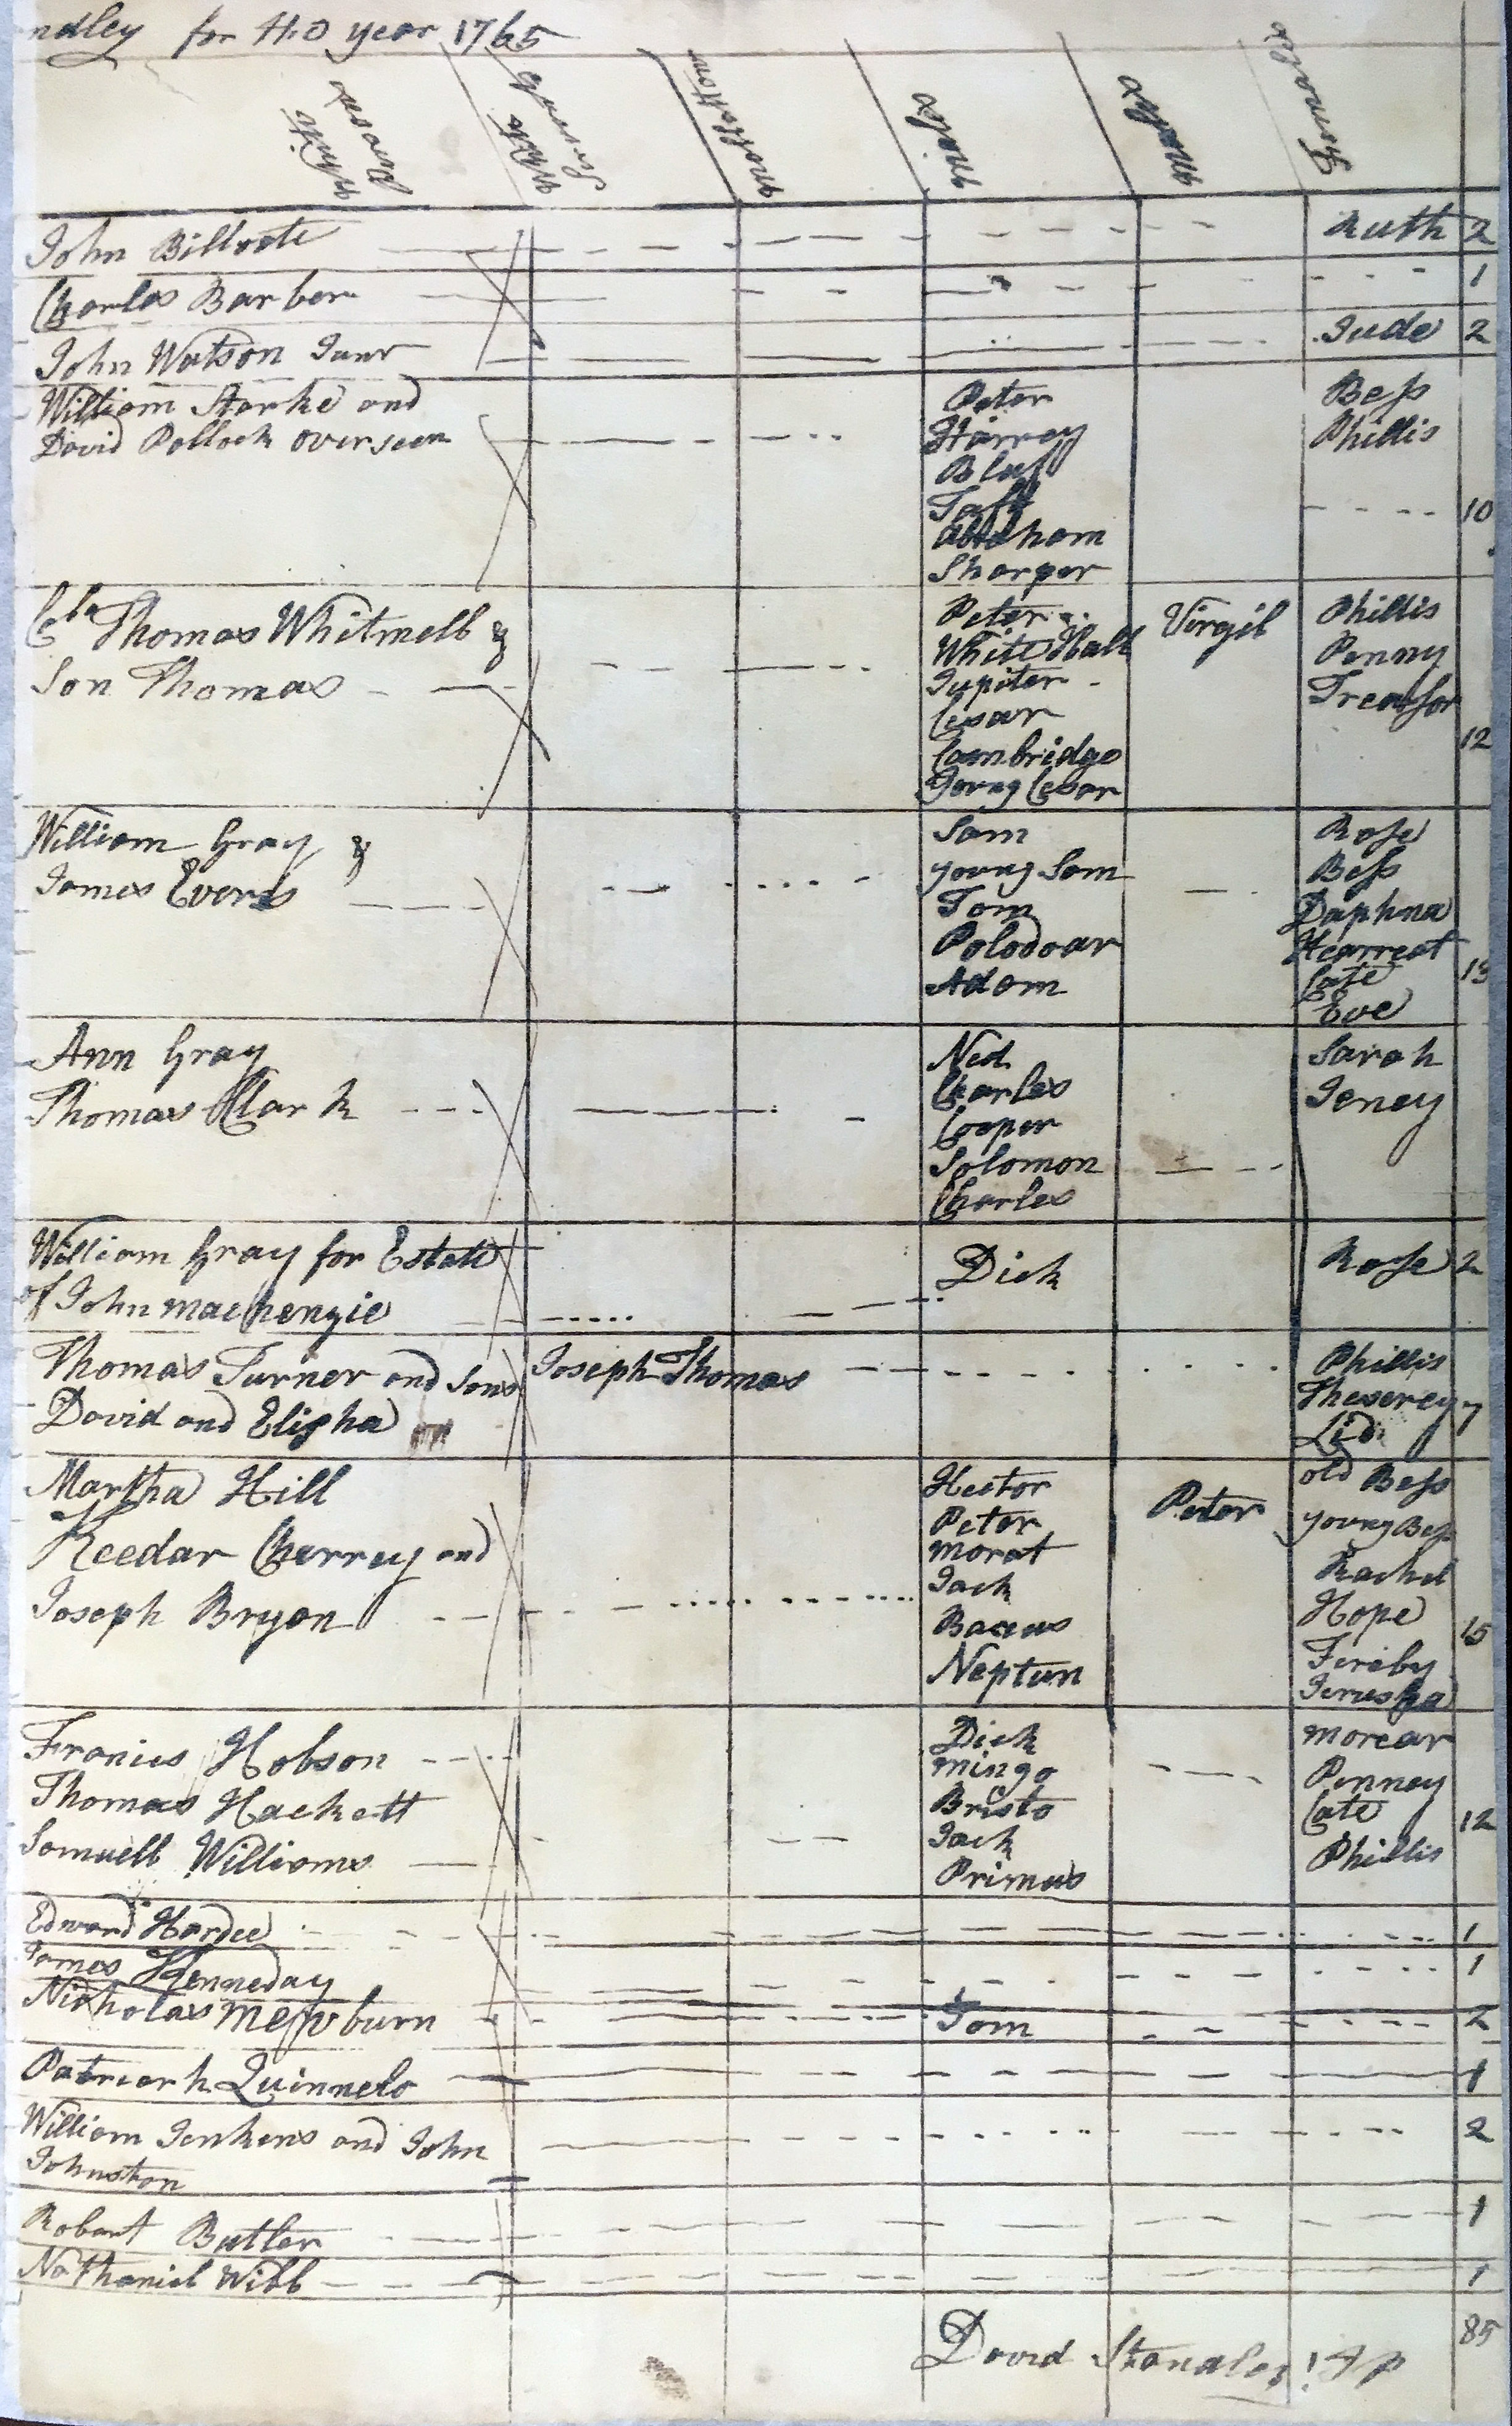 ndley for the year 1765
White Persons
White Servants
mollattows
males
males
Females
John Billoate Ruth 2
Charles Barber 1
John Watson Junr Jude 2
William Starke and Peter Bess
David Pollock overseer Harrey Phillis
Bluff
Taff
Abraham 10
Sharper
Thomas Whitmell & Peter Virgil Phillis
Son Thomas White Hall Penny
Jupiter Treassor
Cesar
Cambridge 12
Young Cesar
William Gray & Sam Rose
James Evers young Sam Bess
Tom Daphna
Polodoar Hearreat
Adam Cate 13
Eve
Ann Gray Ned Sarah
Thomas Clark Charles Jeney
Cooper
Solomon
Charles
William Gray for Estate Dick Rose 2
of John mackenzie
Thomas Turner and Sons Joseph Thomas Phillis
David and Elisha Theserey 7
Lid
Martha Hill Hector Peter old Bess
Keedar Cherrey and Peter young Bess
Joseph Bryan morat Rachel
Jack Hope 15
Baccus Fereby
Neptun Jerusha
Francis Hobson Dick morear
Thomas Hackett mingo Penney
Samuell Williams Bristo Cate 12
Jack Phillis
Primus
Edward Hardee 1
James Kenneday 1
Nicholas Mewburn Tom 2
Patriark Quinnelo 1
William Jenkens and John 2
Johnston
Robart Butler 1
Nathaniel Wibb 1
85
David Standley JP